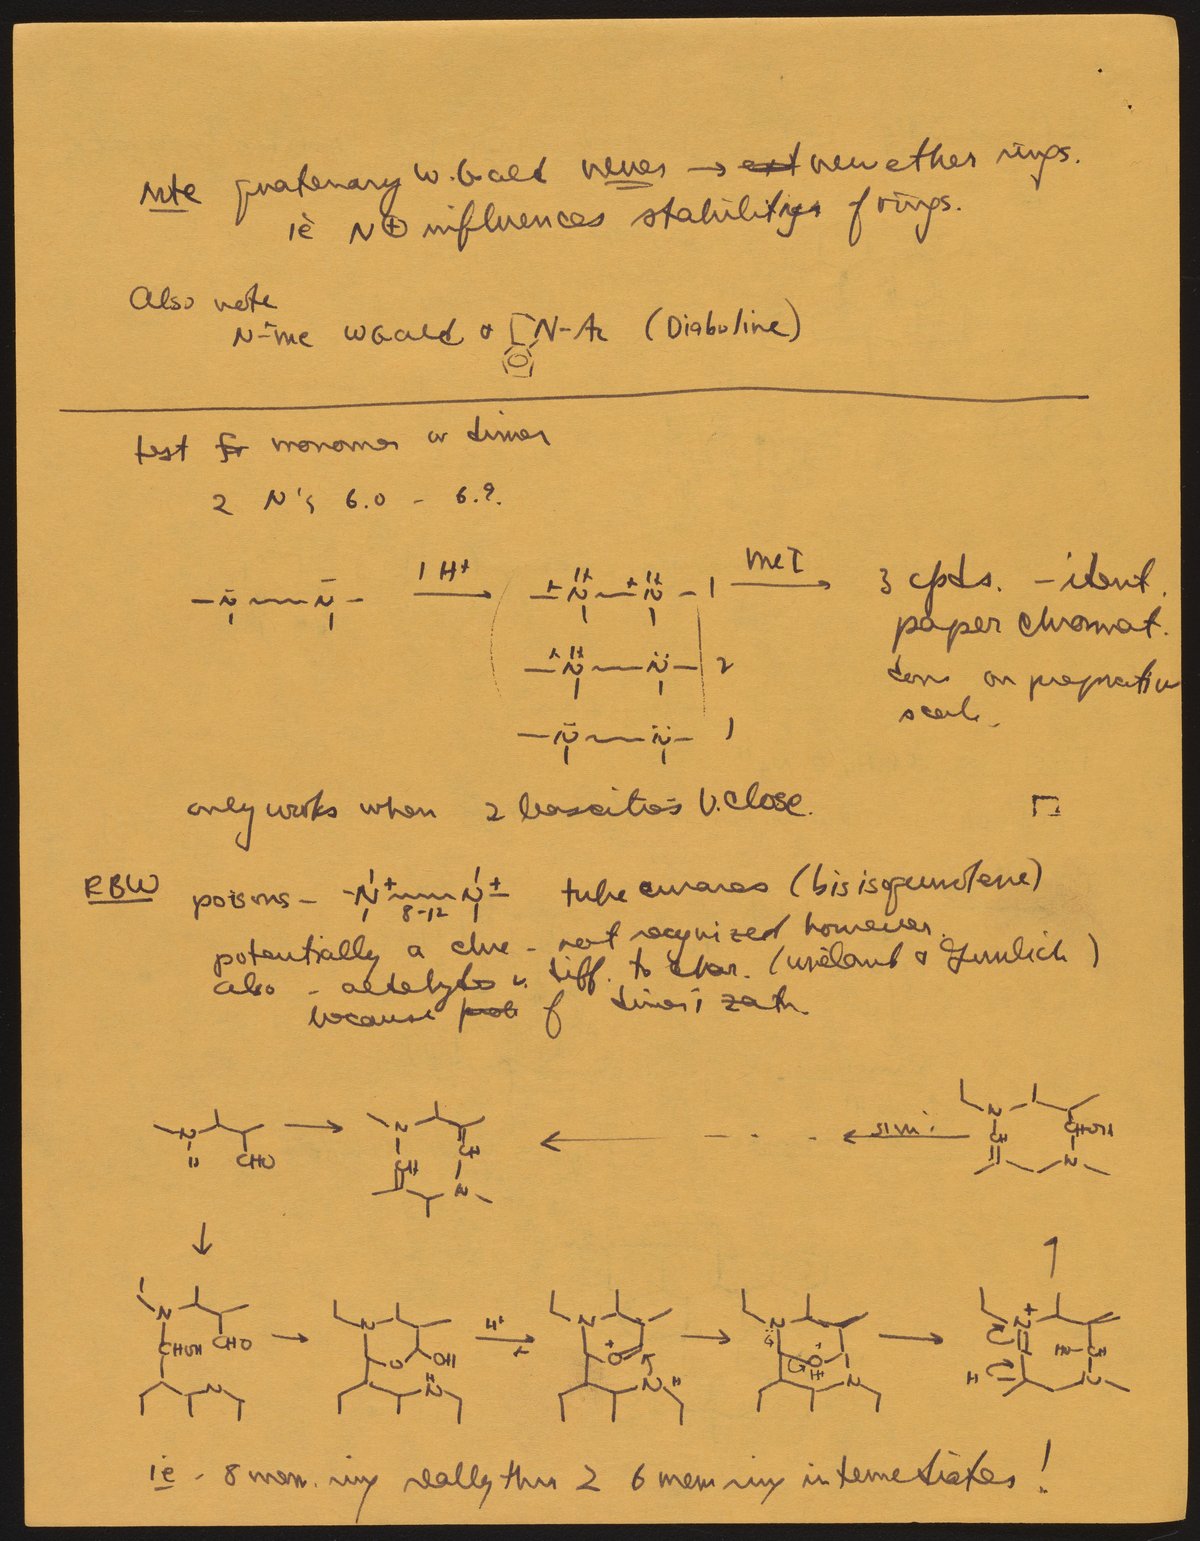 Note quaternary W. Gald never → new ether rings.
ie N⊕ influences stability of rings.
Also note
N-Me WGald & N-Ac (Diaboline)
test for monomer or dimer
2 N's 6.0 - 6.?.
-N~~~N- 1 H+ → +N H ~~~ +N H - 1 MeI → 3 cpds. - ident.
paper chromat.
+N H ~~~ N - 2
done on preparative
scale.
-N~~~N- 1
only works when 2 basicities v. close.
RBW poisons - -N+~~~N+- tube curares (bisisoquinoline)
8-12
potentially a clue - not recognized however.
also - aldehyde v. diff. to char. (Wieland & Gumlich)
because of
N H CHO → N CH CH N ← - - - ← N CH CHOH N
↓ ↑
N CHOH CHO N → N O OH H N H+ → N O+ N H → N O+ H N → N+ HO CH N H
ie - 8 mem. ring really thru 2 6 mem ring intermediates!